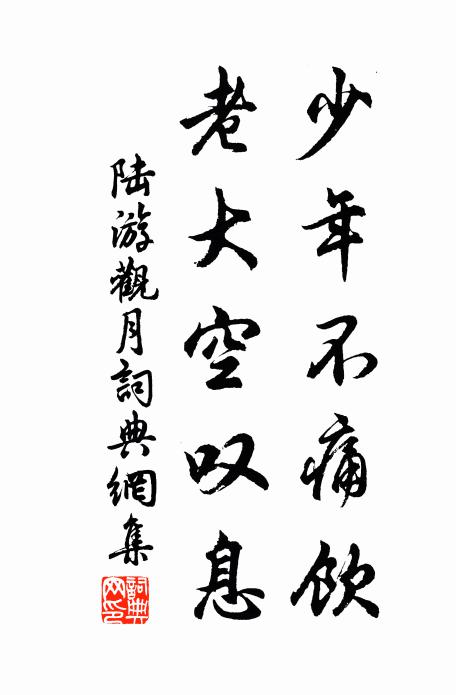 少年不痛飲
老大空叹息
陆游觀月詞典網集
詞典網印